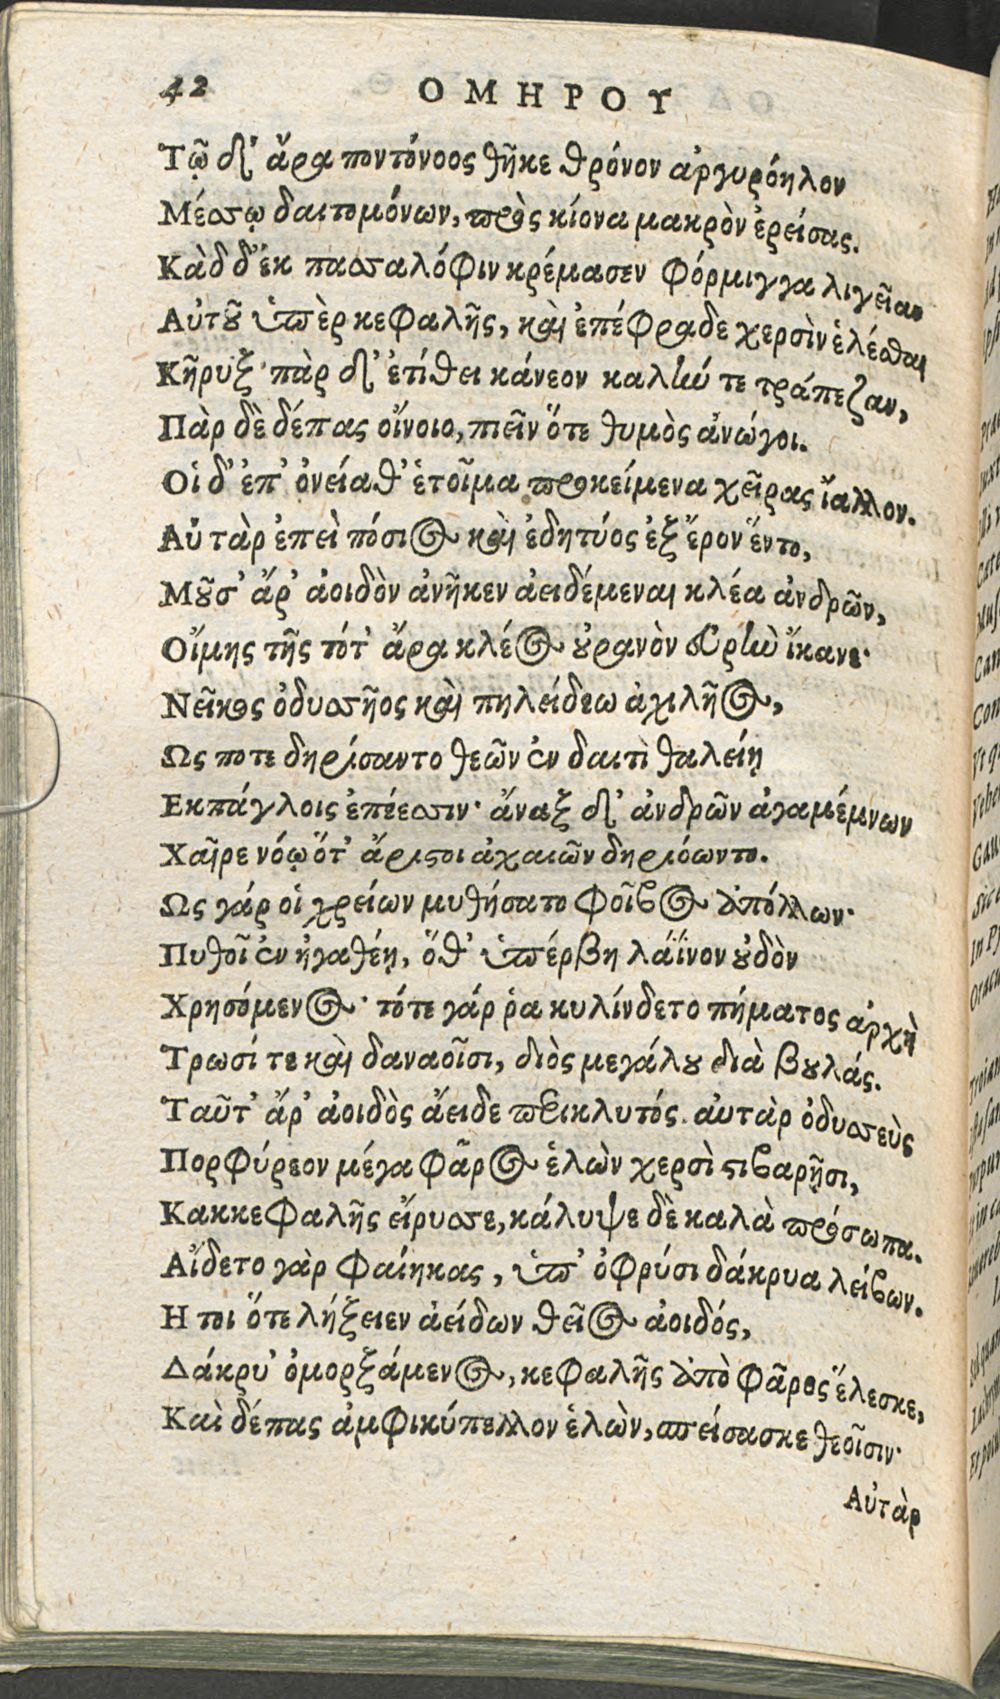 42 ΟΜΗΡΟΥ
Τῷ δ' ἄρα ποντόνοος θῆκε θρόνον ἀργυρόηλον
Μέσσῳ δαιτυμόνων, πρὸς κίονα μακρὸν ἐρείσας.
Κὰδ δ' ἐκ πασσαλόφιν κρέμασεν φόρμιγγα λιγεῖαν
Αὐτοῦ ὑπὲρ κεφαλῆς, καὶ ἐπέφραδε χερσὶν ἑλέσθαι
Κῆρυξ· πὰρ δ' ἐτίθει κάνεον καλήν τε τράπεζαν,
Πὰρ δὲ δέπας οἴνοιο, πιεῖν ὅτε θυμὸς ἀνώγοι.
Οἱ δ' ἐπ' ὀνείαθ' ἑτοῖμα προκείμενα χεῖρας ἴαλλον.
Αὐτὰρ ἐπεὶ πόσιος καὶ ἐδητύος ἐξ ἔρον ἕντο,
Μοῦσ' ἄρ' ἀοιδὸν ἀνῆκεν ἀειδέμεναι κλέα ἀνδρῶν,
Οἴμης τῆς τότ' ἄρα κλέος οὐρανὸν εὐρὺν ἵκανε·
Νεῖκος ὀδυσσῆος καὶ πηλείδεω ἀχιλῆος,
Ως ποτε δηρίσαντο θεῶν ἐν δαιτὶ θαλείῃ
Εκπάγλοις ἐπέεσσιν· ἄναξ δ' ἀνδρῶν ἀγαμέμνων
Χαῖρε νόῳ ὅτ' ἄριστοι ἀχαιῶν δηριόωντο.
Ως γάρ οἱ χρείων μυθήσατο φοῖβος ἀπόλλων·
Πυθοῖ ἐν ἠγαθέῃ, ὅθ' ὑπέρβη λάϊνον οὐδὸν
Χρησόμενος· τότε γάρ ῥα κυλίνδετο πήματος ἀρχὴ
Τρωσί τε καὶ δαναοῖσι, διὸς μεγάλου διὰ βουλάς.
Ταῦτ' ἄρ' ἀοιδὸς ἄειδε περικλυτός. αὐτὰρ ὀδυσσεὺς
Πορφύρεον μέγα φᾶρος ἑλὼν χερσὶ στιβαρῇσι,
Κακκεφαλῆς εἴρυσσε, κάλυψε δὲ καλὰ πρόσωπα.
Αἴδετο γὰρ Φαίηκας, ὑπ' ὀφρύσι δάκρυα λείβων.
Η τοι ὅτε λήξειεν ἀείδων θεῖος ἀοιδός,
Δάκρυ' ὀμορξάμενος, κεφαλῆς ἀπὸ φᾶρος ἕλεσκε,
Καὶ δέπας ἀμφικύπελλον ἑλὼν, σπείσασκε θεοῖσιν·
Αὐτὰρ